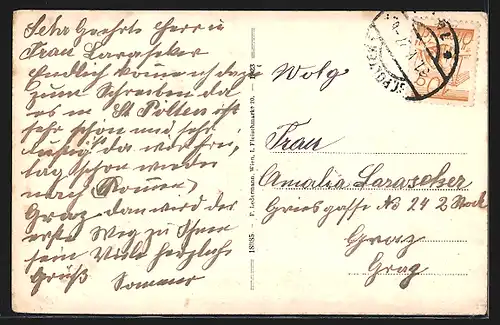 Sehr Geehrte Herr u
Frau Larascher
Endlich komme ich dazu
zum Schreiben da
es in St Pölten ist
sehr schön und sehr
lustig da
tag schon wieder
nach
Graz dan wird der
erste Weg zu Ihnen
sein Viele herzliche
Grüß Sommer
18985 F. Ledermann, Wien, I. Fleischmarkt 20.
ST. PÖLTEN
50
Wolg
Frau
Amalia Larascher
Griesgasse No 24 2 Stock
Graz
Graz